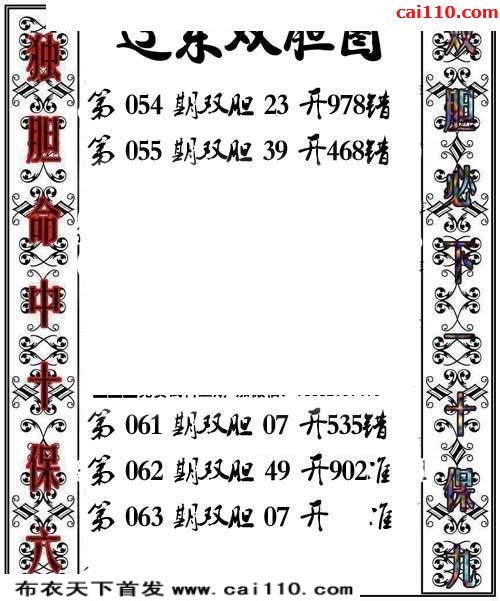 cai110.com
双胆图
第 054 期双胆 23 开978错
第 055 期双胆 39 开468错
第 061 期双胆 07 开535错
第 062 期双胆 49 开902准
第 063 期双胆 07 开 准
独胆命中十保六
双胆必下一十保九
布衣天下首发 www.cai110.com